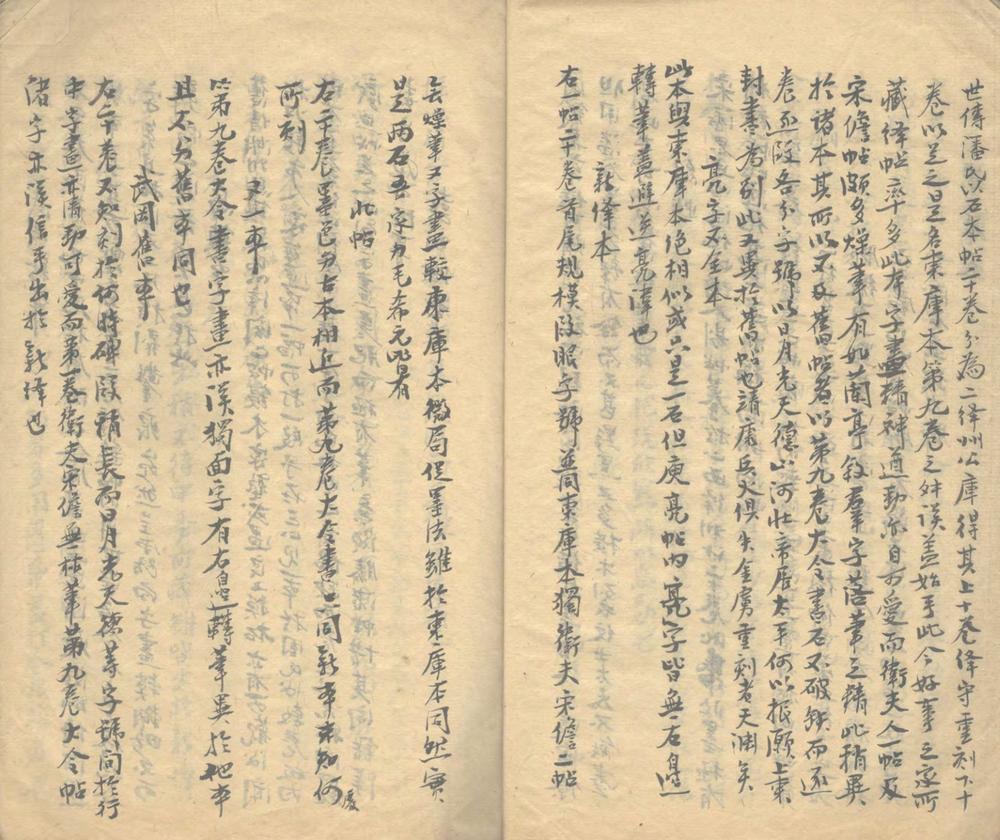 世傳潘氏石本帖二十卷分為二絳州公庫得其上十卷絳守重刻下十
卷以足之曰是名東庫本第九卷之舛誤蓋始乎此今好事之家所
藏絳帖率多此本字畫精神遒勁亦自可愛而衛夫人一帖及
宋儋帖頗多燥筆有如蘭亭叙羣字落筆之精此稍異
於諸本其所以又及舊帖者以第九卷大令書石不破缺而逐
卷逐段各分字號以日月光天德山河壯帝居太平何以報願上東
封書為別此又異於舊帖也靖康兵火俱失金虜重刻者天淵矣
亮字不全本
此本與東庫本絶相似或只是一石但庾亮帖内亮字皆無右邊
轉筆蓋避逆亮諱也
新絳本
右一帖二十卷首尾規模段眼字號並同東庫本獨衛夫宋儋二帖
去燥筆又字畫較東庫本微局促墨法雖於東庫本同然實
是兩石吾家有毛希元者
此帖
右二十卷墨色與古本相近而第九卷大令書正同新本未知何處
所刻
又一本
第九卷大令書字畫亦誤獨面字有右邊轉筆異於他本
且不與舊本同也
武岡舊本
右二十卷不知刻於何時碑段稍長而日月光天德等字號間於行
中字畫亦清勁可愛而第一卷衛夫宋儋無一枯筆第九卷大令帖
諸字亦誤信乎出於新絳也